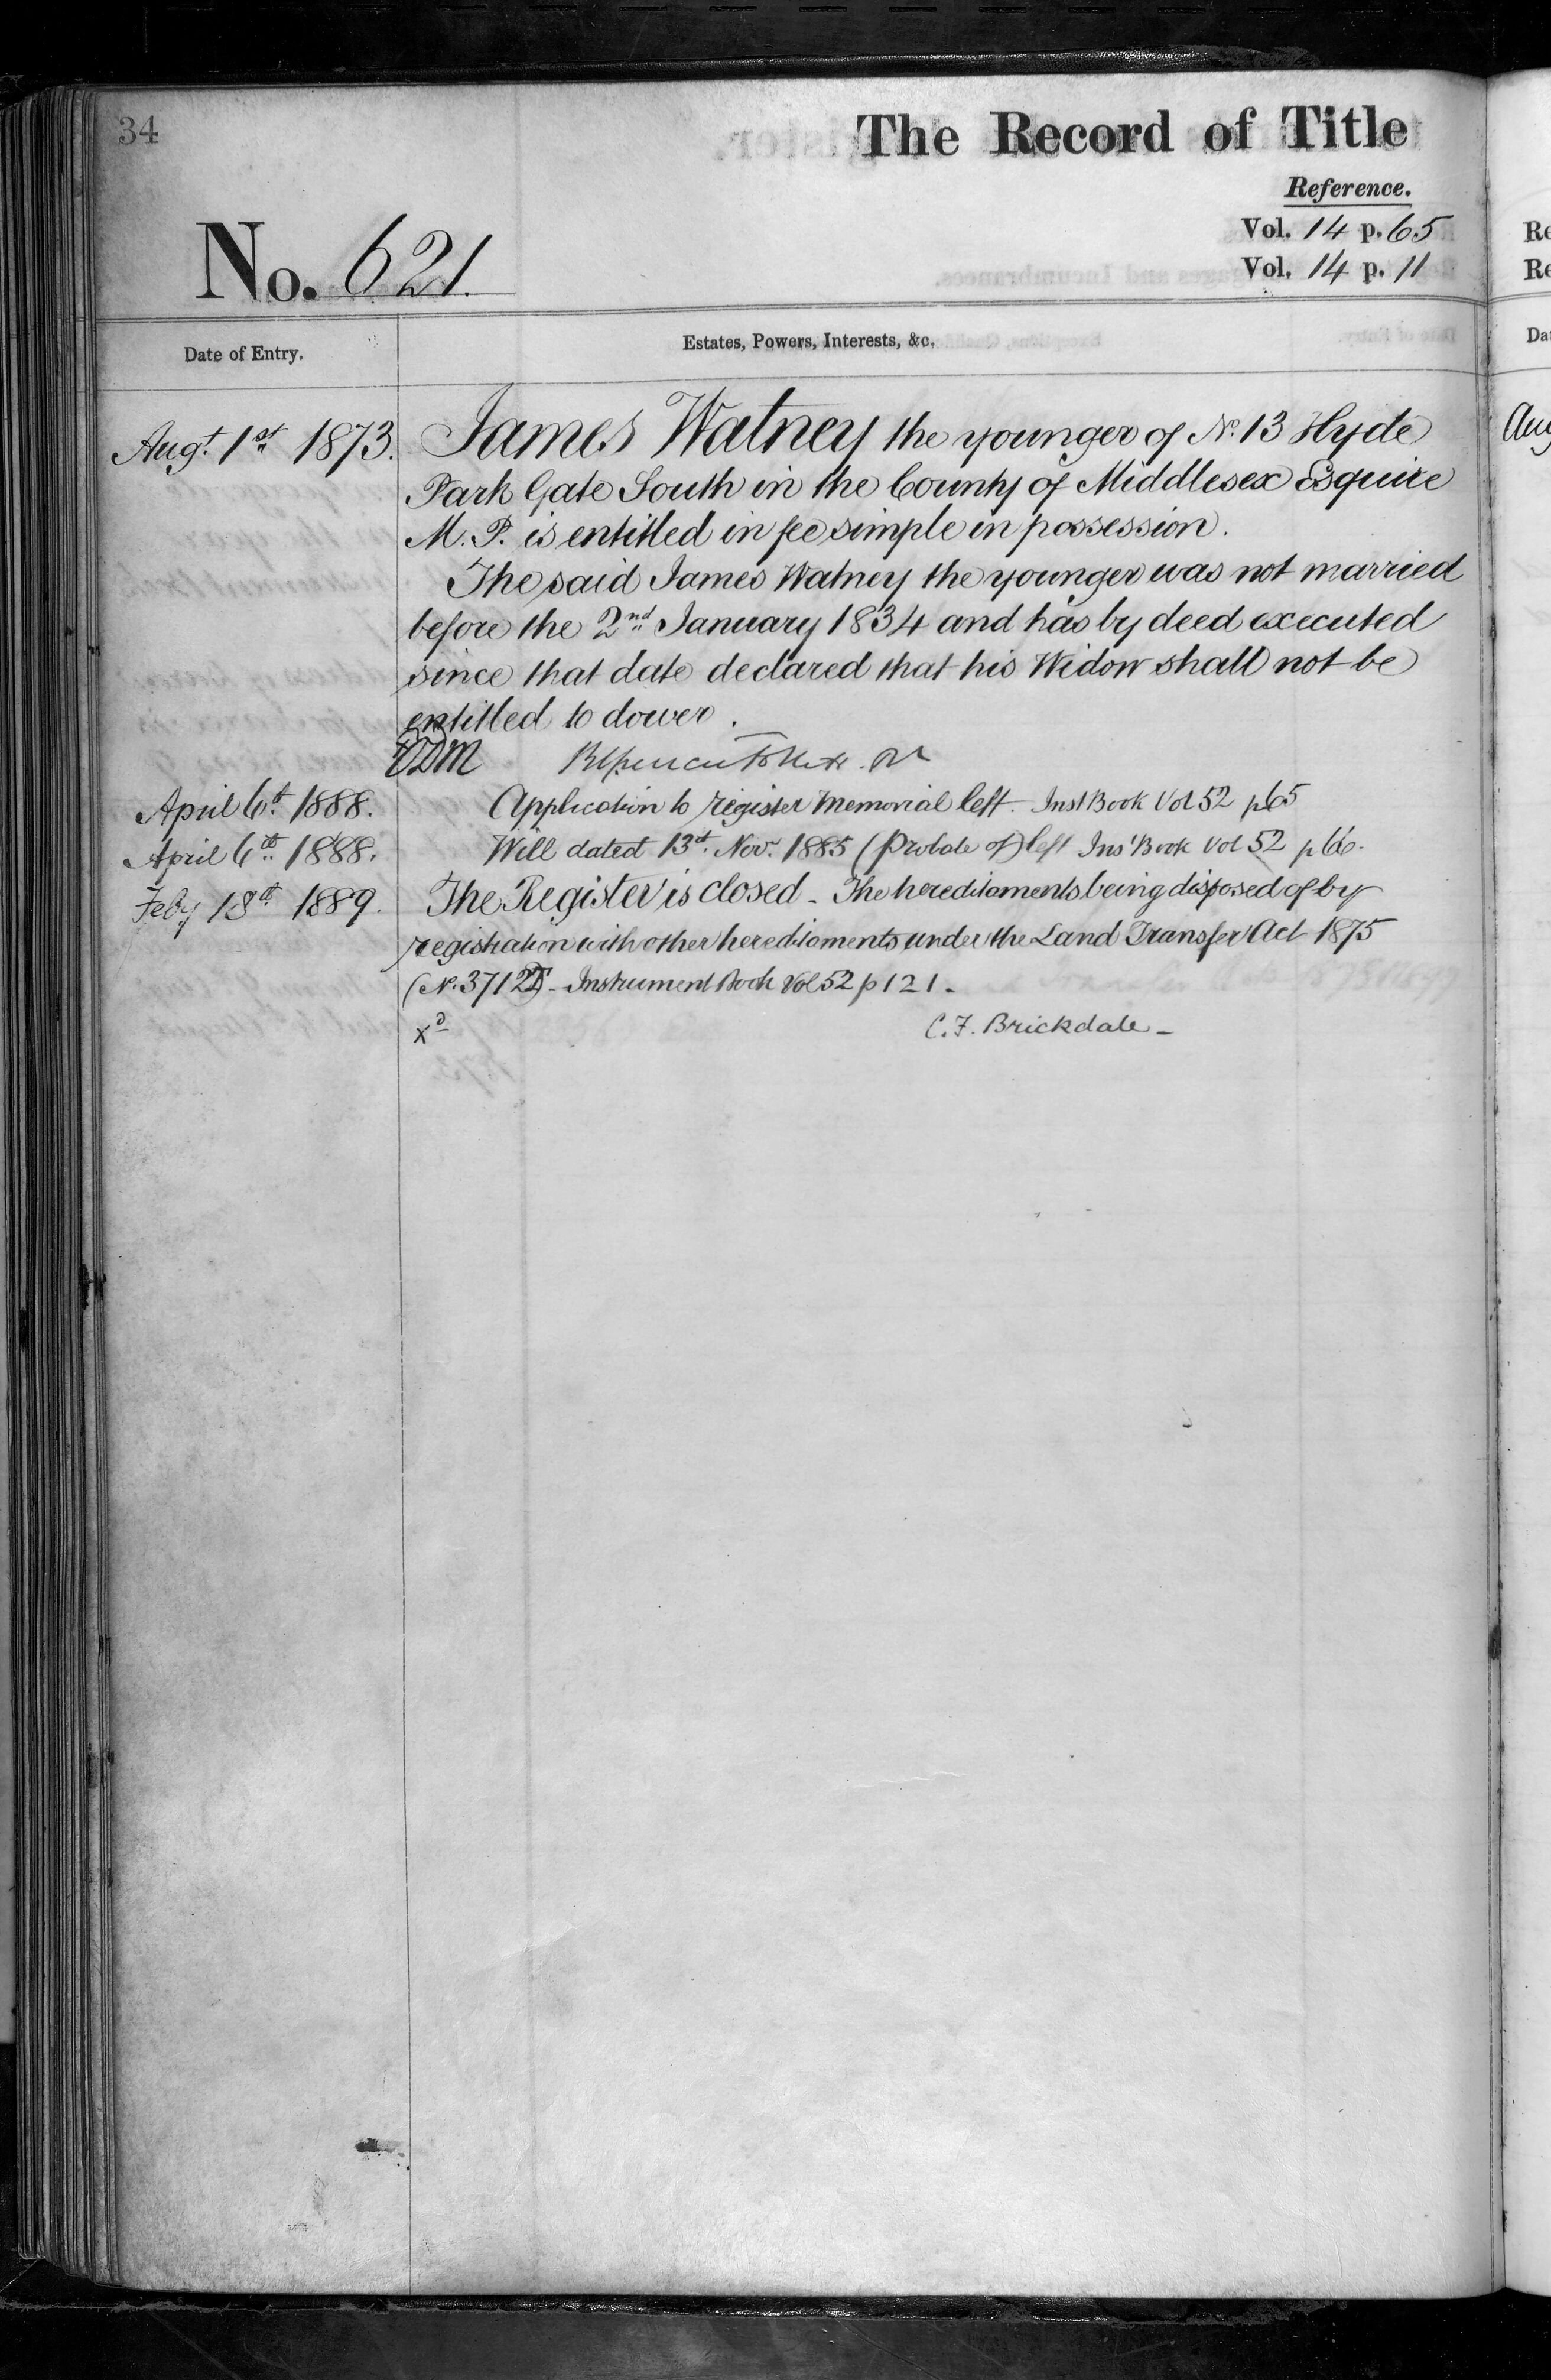 34
The Record of Title
Reference.
Vol. 14 p. 65
No. 621.
Vol. 14 p. 11
Date of Entry.
Estates, Powers, Interests, &c.
Augt. 1st 1873. James Watney the younger of No. 13 Hyde
Park Gate South in the County of Middlesex Esquire
M. P. is entitled in fee simple in possession.
The said James Watney the younger was not married
before the 2nd January 1834 and has by deed executed
since that date declared that his Widow shall not be
entitled to dower.
April 6th 1888. Application to register Memorial left. Inst Book Vol 52 p 65
April 6th 1888. Will dated 13th Nov. 1885 (Probate of) left Inst Book Vol 52 p 66.
Feby 18th 1889. The Register is closed - The hereditaments being disposed of by
registration with other hereditaments under the Land Transfer Act 1875
(No. 3712) - Instrument Book Vol 52 p 121 -
xd
C. F. Brickdale -
Re
Re
Da
Aug